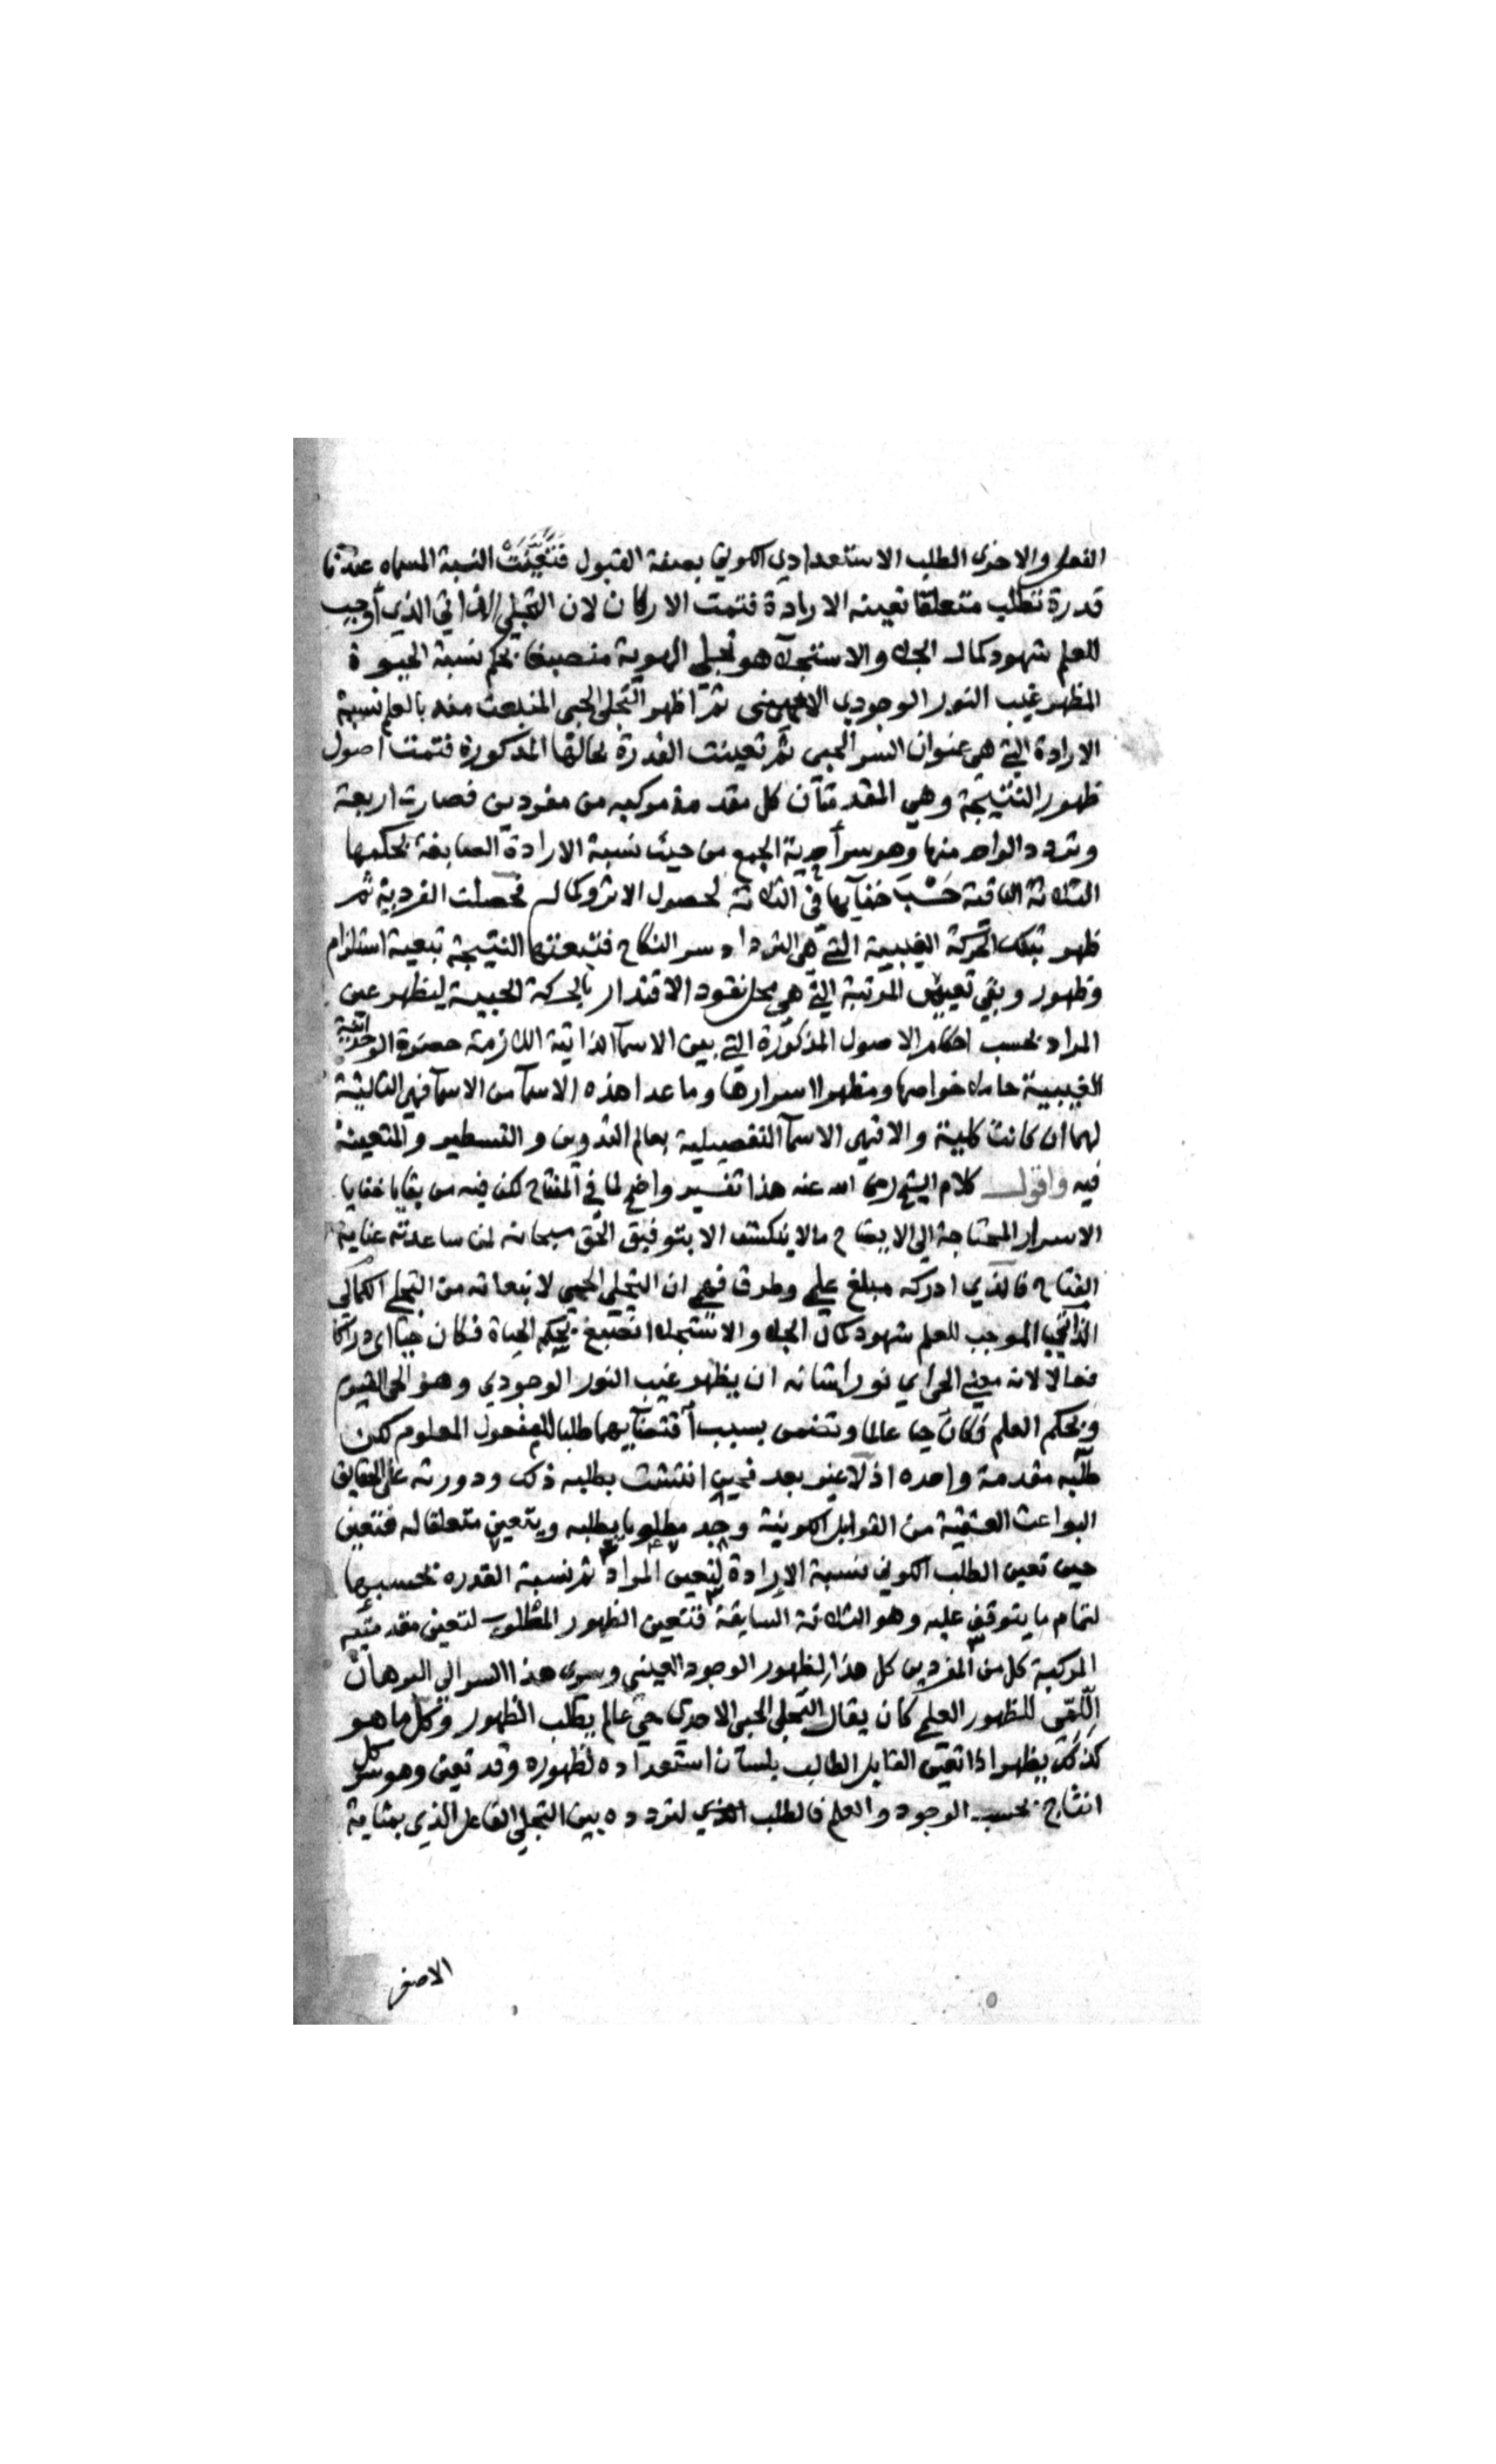 الفعل والاخرى الطلب الاستعدادي الكوني بصفة القبول فتعينت النسبة المسماه عندنا
قدرة تطلب متعلقا تعينه الارادة فتمت الاركان لان التجلي الذاتي الذي أوجب
للعلم شهود كمال الجلاء والاستجلآ هو تجلي الهوية منصبغا بحكم نسبة الحيوة
المظهر غيب النور الوجودي الغيبي ثمّ اظهر التجلي الحبي المنبعث منه بالعلم نسبة
الارادة التي هي عنوان السر الحبي ثم تعينت القدرة لحالتها المذكورة فتمت اصول
ظهور النتيجة وهي المقدمتان كل مقدمة مركبه من مفردين فصارت اربعة
وتردد الواحد منها وهو سر أحدية الجمع من حيث نسبة الارادة الصابغة بحكمها
الثلاثة الباقية حَسْبَ خفآيها في الثلاثة لحصول الاثر وكماله فحصلت الفردية ثمّ
ظهر بتلك الحركة الغيبية التي هي الترداد سر النكاح فتبعتها النتيجة تبعية استلزام
وظهور وبقي تعيين المرتبة التي هي محل نفود الاقتدار بالحركة الحبية ليظهر عين
المراد بحسب احكام الاصول المذكورة التي بين الاسمآ الذاتية اللازمة حضرة الوحدانية
الغيبية حاملا خواصها ومظهرا اسرارها وما عدا هذه الاسمآ من الاسمآ فهي التالية
لهما ان كانت كلية والا فهي الاسمآ التفصيلية بعالم التدوين والتسطير والمتعينة
فيه واقول كلام الشيخ رضى الله عنه هذا تفسير واضح لما في المفتاح لكن فيه من بقايا خفايا
الاسرار المحتاجة الى الايضاح مالا ينكشف الا بتوفيق الحق سبحانه لمن ساعدته عناية
الفتاح فالذي ادركه مبلغ علمي وطرق فهمي ان التجلي الحبي لانبعاثه من التجلي الكمالي
الذاتي الموجب للعلم شهود كمال الجلا والاستجلا انصبغ بحكم الحياة فكان حيّا اى درّاكا
فعالا لانه معنى الحي اي نورا شانه ان يظهر غيب النور الوجودي وهو الحي القيوم
وبحكم العلم فكان حيا عالما وتضمن بسبب اقتضآيهما طلبا للمفعول المعلوم لكن
طلبه مقدمة واحده اذ لا غير بعد فحين انتشت بطلبه ذلك ودورته على الحقايق
البواعث العشقية من القوابل الكونية وجد مطلوبا يطلبه ويتعين متعلقا له فتتعين
حين تعين الطلب الكوني نسبة الارادة لتعين المراد ثم نسبة القدره بحسبها
لتمام ما يتوقف عليه وهو الثلاثة السابقة فتتعين الظهور المطلوب لتعين مقدمتيه
المركبة كل من المفردين كل هذا لظهور الوجود العيني وسرى هذا السر الي البرهان
اللمّى للظهور العلمي كان يقال التجلي الحبي الاحدي حي عالم يطلب الظهور وكل ما هو
كذلك يظهر اذا تعين القابل الطالب بلسان استعداده لظهوره وقد تعين وهو سر كل
انتاج بحسب الوجود والعلم فالطلب الذي لتردده بين التجلي الفاعل الذي بمثابة
الاصغر